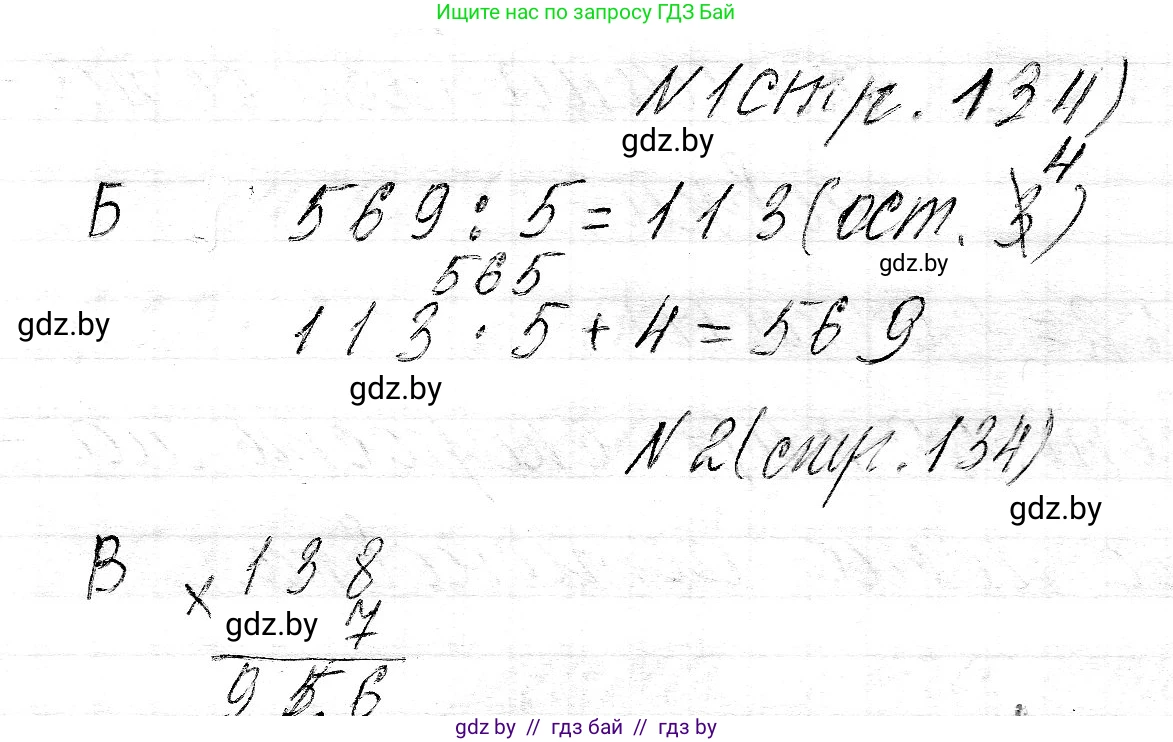 Ищите нас по запросу ГДЗ Бай
N 1 стр. 134)
gdz.by
4
Б 569 : 5 = 113 (ост. 3)
gdz.by
565
gdz.by
113 · 5 + 4 = 569
gdz.by
N 2 (стр. 134)
gdz.by
В × 138
gdz.by 7
966
gdz.by // гдз бай // гдз by